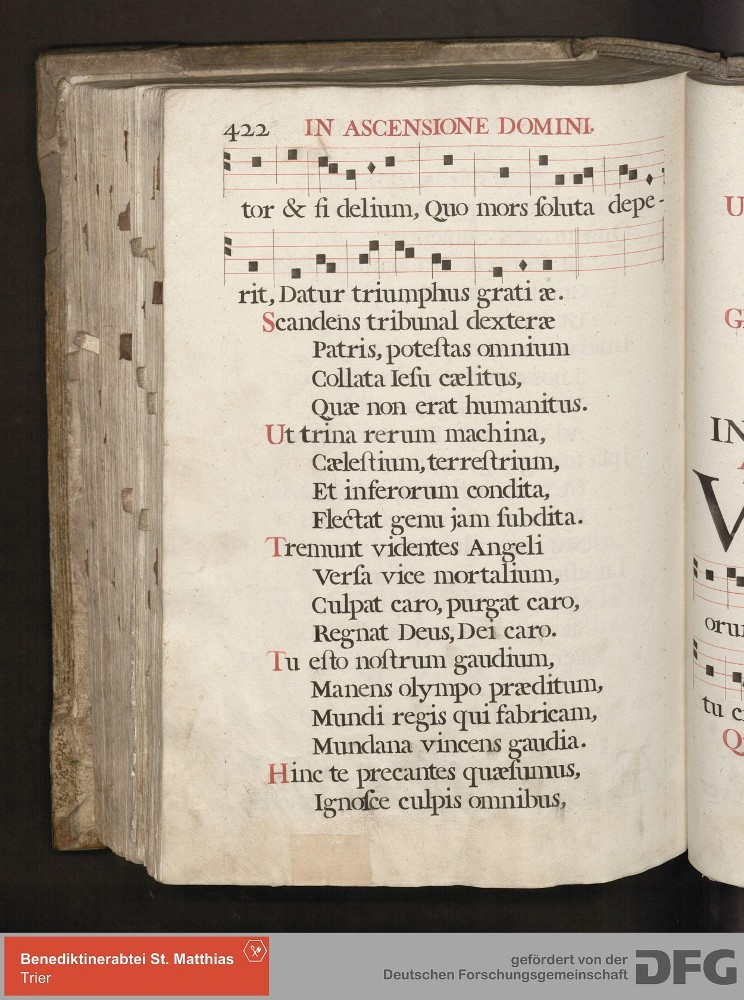 422 IN ASCENSIONE DOMINI.
tor & fi delium, Quo mors ſoluta depe-
rit, Datur triumphus grati æ.
Scandens tribunal dexteræ
Patris, poteſtas omnium
Collata Ieſu cælitus,
Quæ non erat humanitus.
Ut trina rerum machina,
Cæleſtium, terreſtrium,
Et inferorum condita,
Flectat genu jam ſubdita.
Tremunt videntes Angeli
Verſa vice mortalium,
Culpat caro, purgat caro,
Regnat Deus, Dei caro.
Tu eſto noſtrum gaudium,
Manens olympo præditum,
Mundi regis qui fabricam,
Mundana vincens gaudia.
Hinc te precantes quæſumus,
Ignoſce culpis omnibus,
U
G
IN
V
orum
tu c
Q
Benediktinerabtei St. Matthias
Trier
gefördert von der
Deutschen Forschungsgemeinschaft
DFG